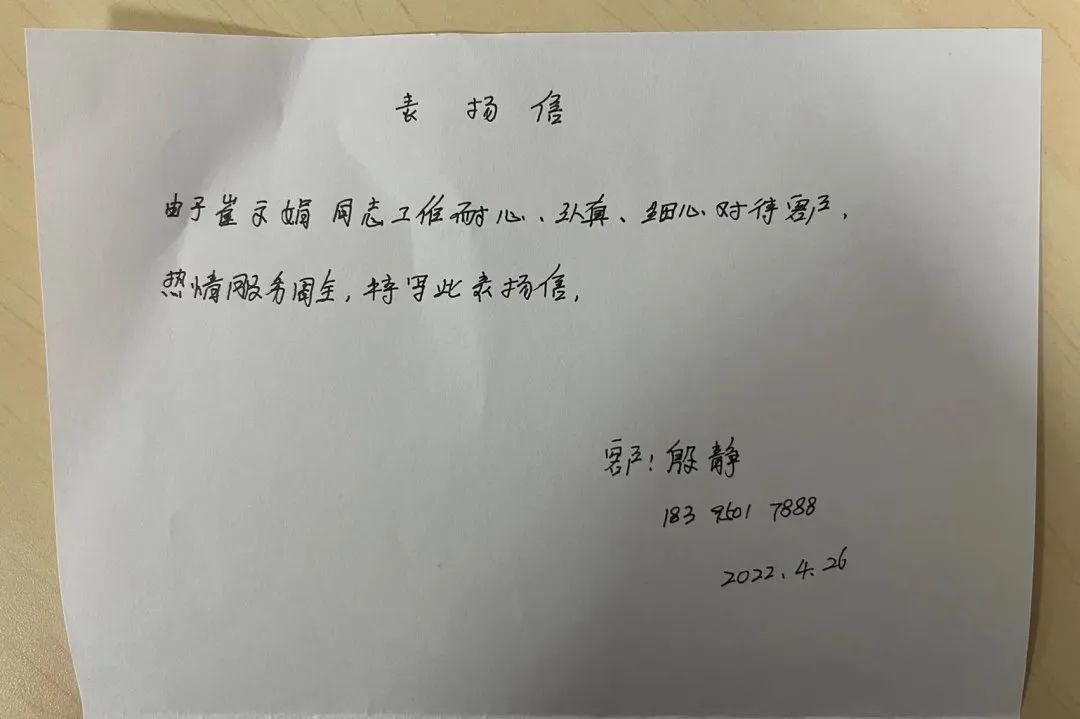 表扬信
由于崔文娟同志工作耐心、认真、细心对待客户,
热情服务周全,特写此表扬信,
客户:殷静
183 9501 7888
2022.4.26